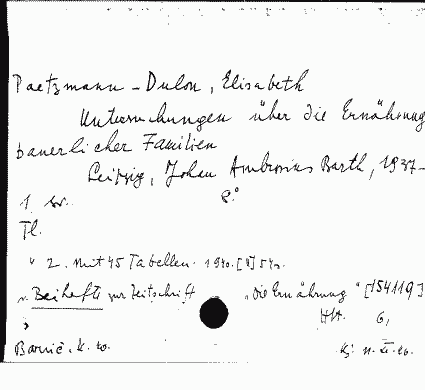 Paetzmann-Dulon, Elisabeth
Untersuchungen über die Ernährung
bauerlicher Familien
Leipzig, Johan Ambrosius Barth, 1937-
8°
1
Tl.
" 2. Mit 45 Tabellen. 1940. [1] 54
Beihefte zur Zeitschrift "Die Ernährung" [154119]
6,